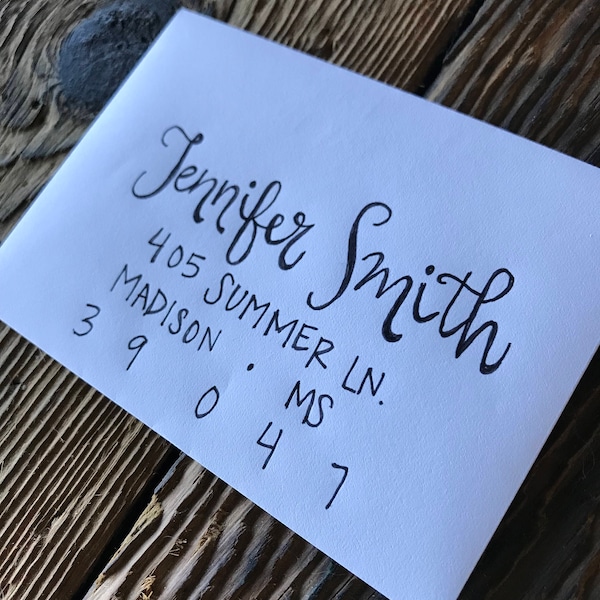 Jennifer Smith
405 SUMMER LN.
MADISON • MS
3 9 0 4 7